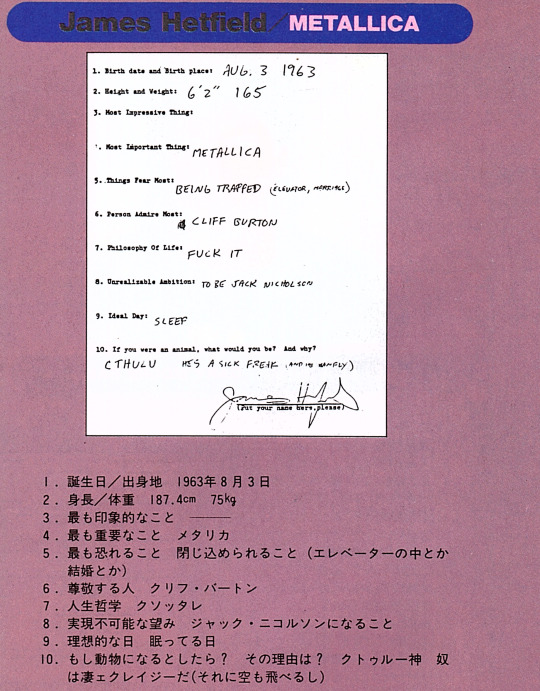 James Hetfield/METALLICA
1. Birth date and Birth place: AUG. 3 1963
2. Height and Weight: 6'2" 165
3. Most Impressive Thing:
'. Most Important Thing: METALLICA
5. Things Fear Most: BEING TRAPPED (ELEVATOR, MARRIAGE)
6. Person Admire Most: CLIFF BURTON
7. Philosophy Of Life: FUCK IT
8. Unrealizable Ambition: TO BE JACK NICHOLSON
9. Ideal Day: SLEEP
10. If you were an animal, what would you be? And why?
CTHULU HE'S A SICK FREAK (AND HE CAN FLY)
James Hetfield
(Put your name here, please)
1. 誕生日／出身地 1963年8月3日
2. 身長／体重 187.4cm 75kg
3. 最も印象的なこと ———
4. 最も重要なこと メタリカ
5. 最も恐れること 閉じ込められること (エレベーターの中とか
結婚とか)
6. 尊敬する人 クリフ・バートン
7. 人生哲学 クソッタレ
8. 実現不可能な望み ジャック・ニコルソンになること
9. 理想的な日 眠ってる日
10. もし動物になるとしたら？ その理由は？ クトゥルー神 奴
は凄ェクレイジーだ(それに空も飛べるし)